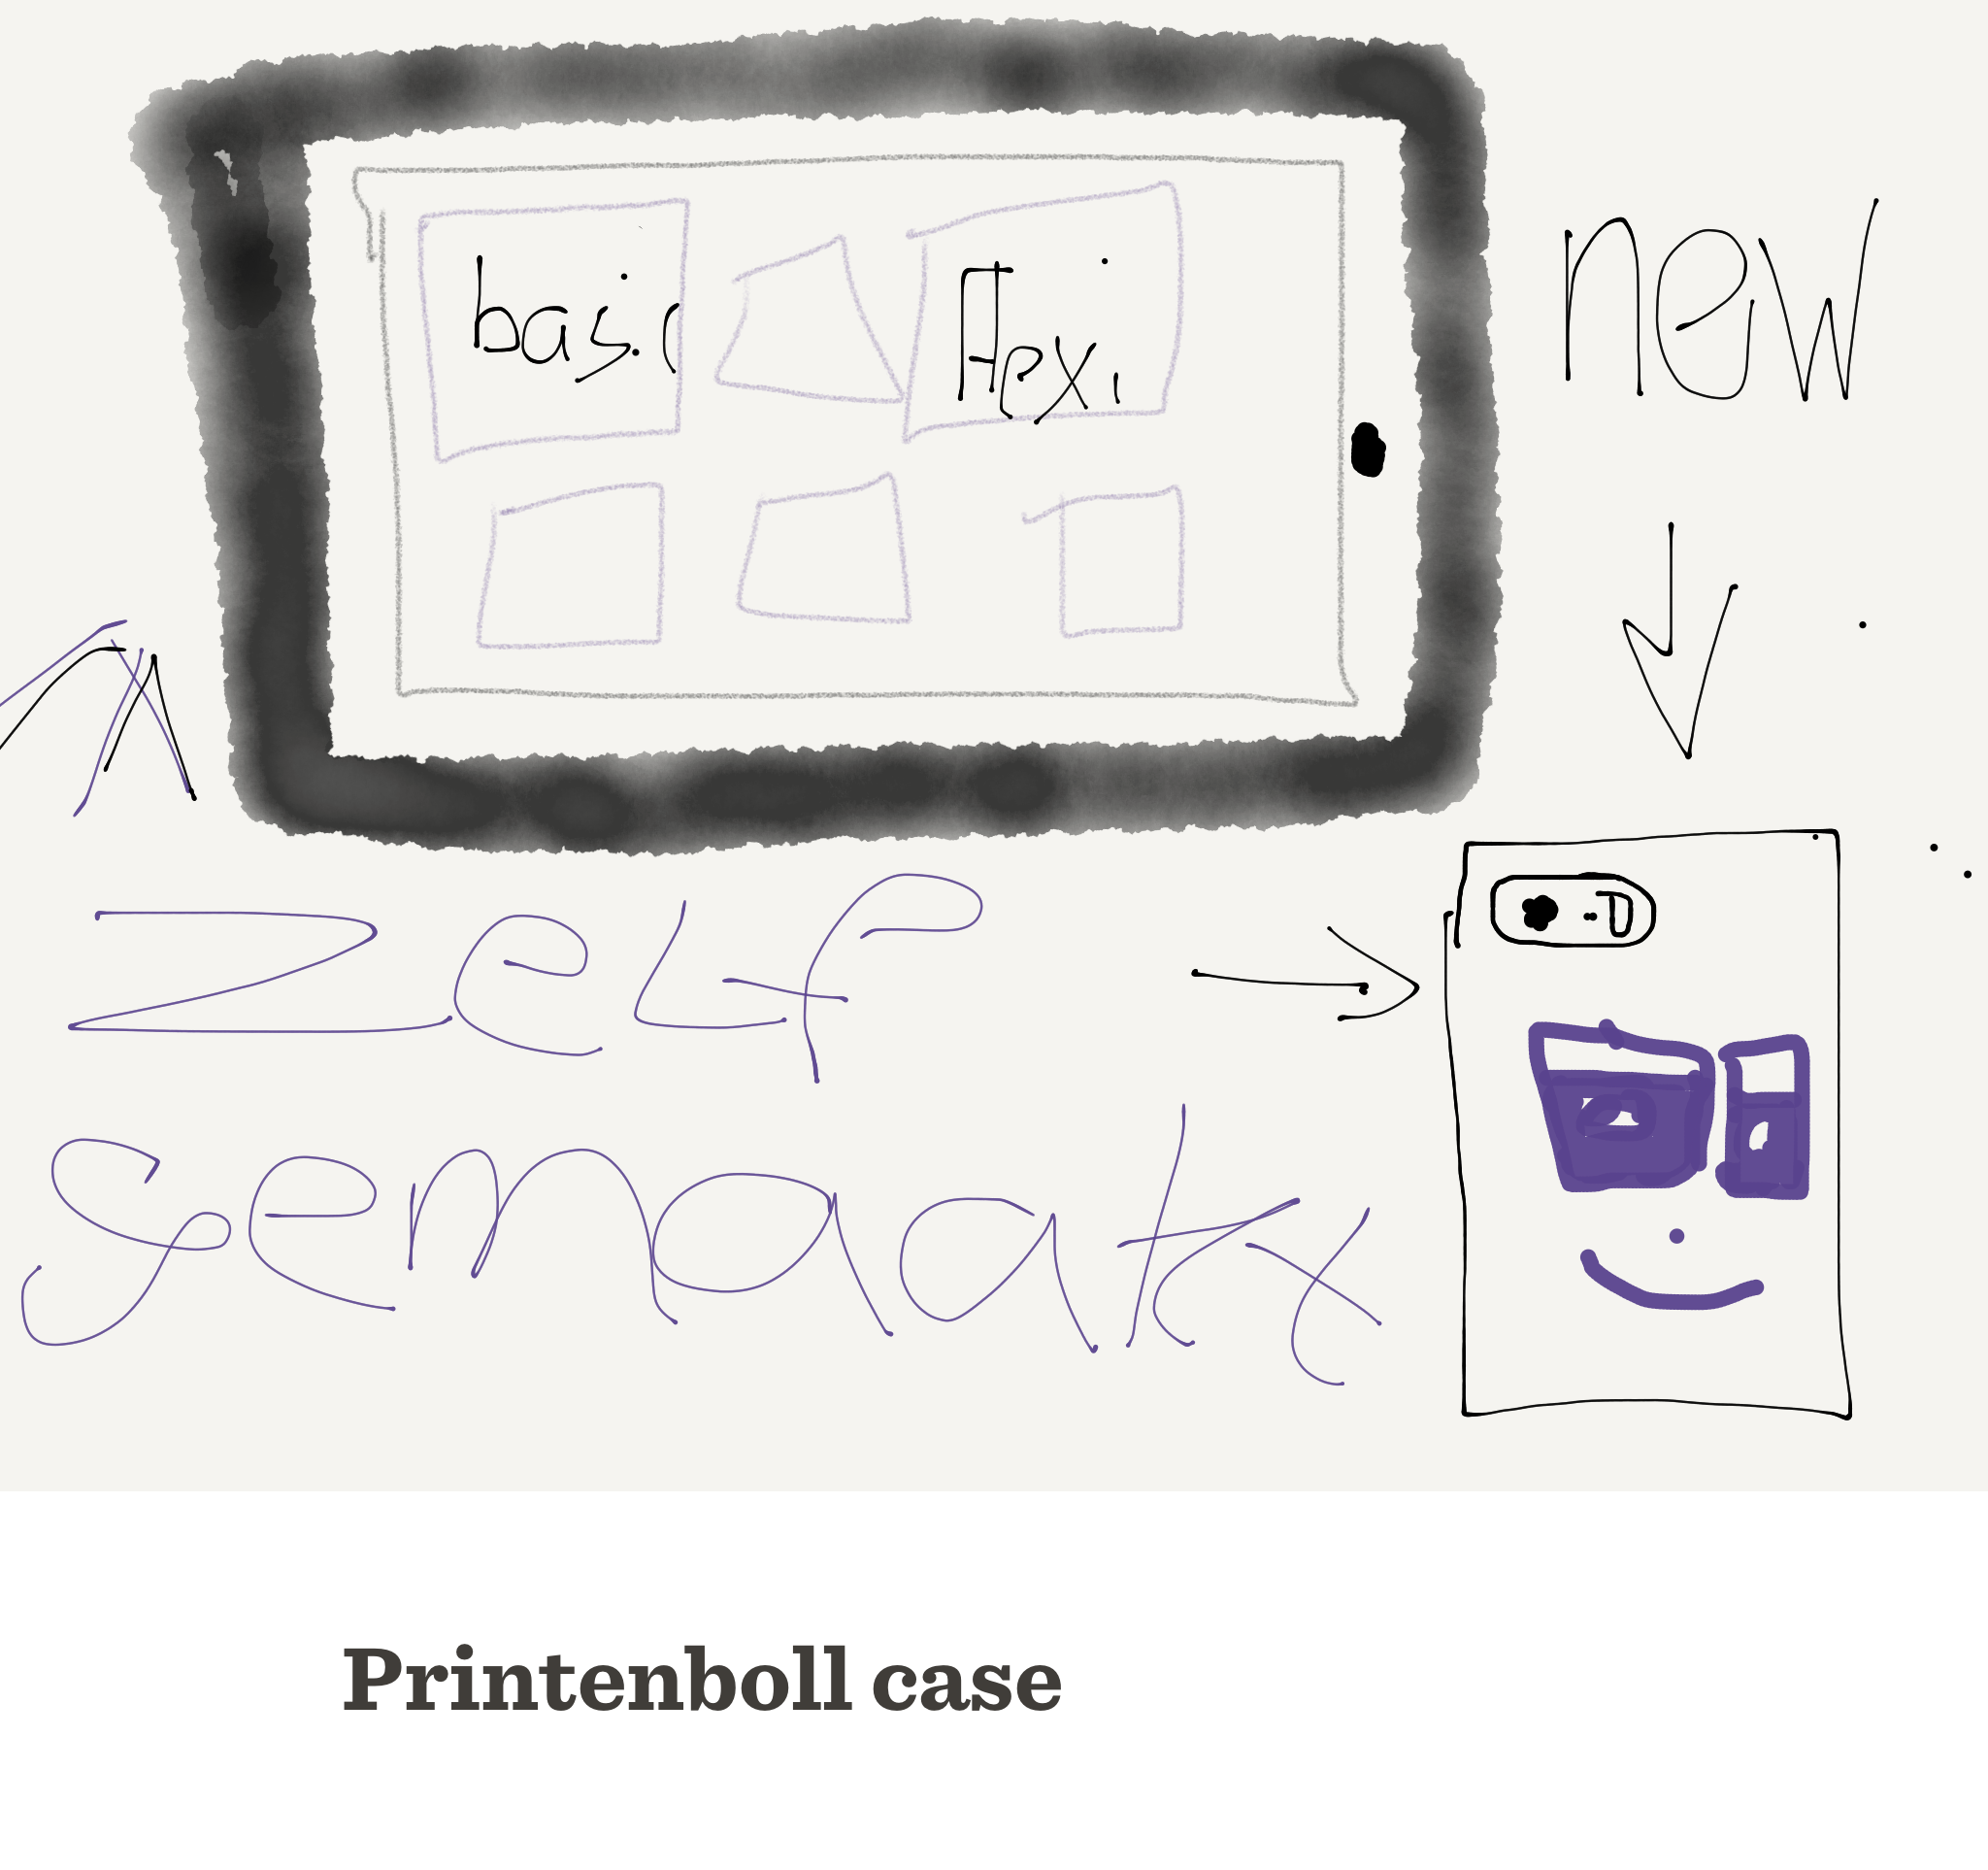 basic
flexi
new
zelf
gemaakt
Printenboll case